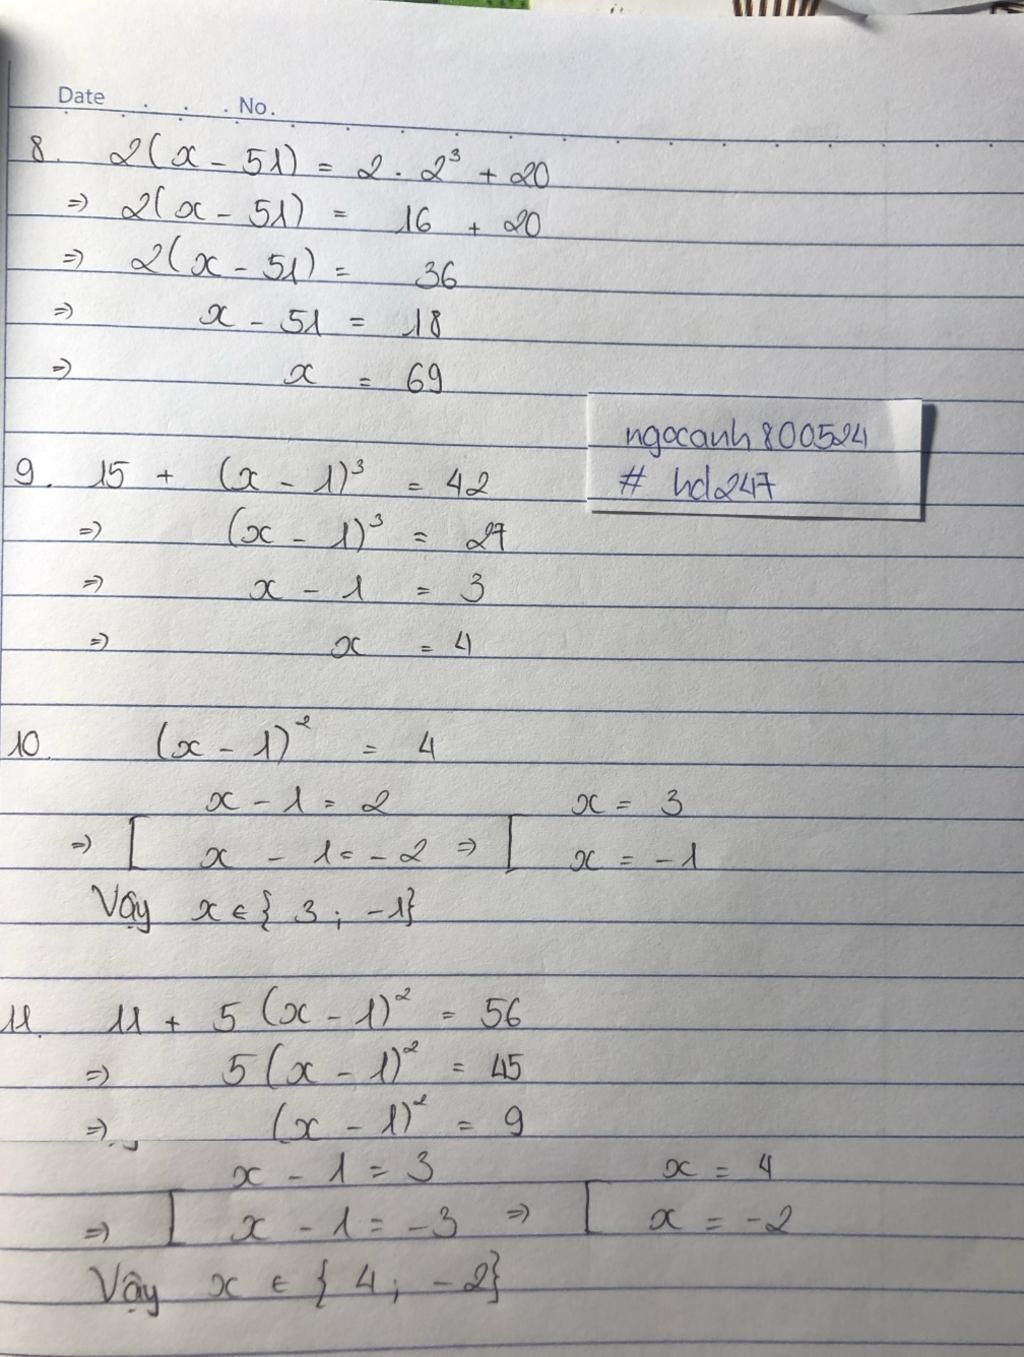 Date . . . No.
8. 2(x - 51) = 2 . 2³ + 20
=> 2(x - 51) = 16 + 20
=> 2(x - 51) = 36
=> x - 51 = 18
=> x = 69
ngocanh800524
# hd247
9. 15 + (x - 1)³ = 42
=> (x - 1)³ = 27
=> x - 1 = 3
=> x = 4
10. (x - 1)² = 4
x - 1 = 2 x = 3
=> [ x - 1 = -2 => [ x = -1
Vậy x ∈ { 3 ; -1}
11. 11 + 5 (x - 1)² = 56
=> 5 (x - 1)² = 45
=> (x - 1)² = 9
x - 1 = 3 x = 4
=> [ x - 1 = -3 => [ x = -2
Vậy x ∈ { 4 ; -2}